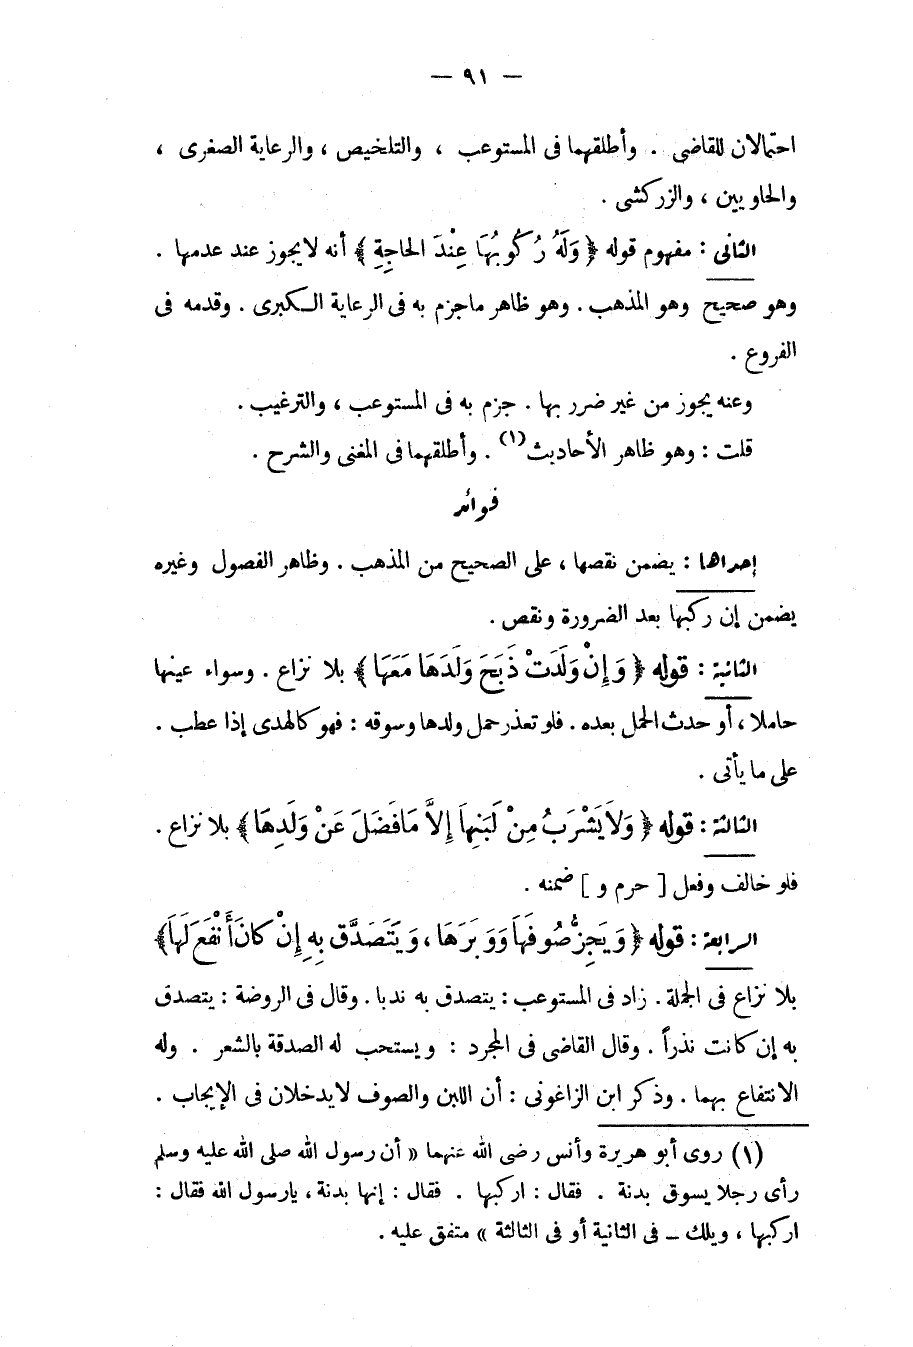 — ٩١ —
احتمالان للقاضى . وأطلقهما فى المستوعب ، والتلخيص ، والرعاية الصغرى ،
والحاويين ، والزركشى .
الثانى : مفهوم قوله ﴿ وَلَهُ رُكُوبُهَا عِنْدَ الحَاجَةِ ﴾ أنه لا يجوز عند عدمها .
وهو صحيح وهو المذهب . وهو ظاهر ماجزم به فى الرعاية الكبرى . وقدمه فى
الفروع .
وعنه يجوز من غير ضرر بها . جزم به فى المستوعب ، والترغيب .
قلت : وهو ظاهر الأحاديث (١) . وأطلقهما فى المغنى والشرح .
فوائد
إحداها : يضمن نقصها ، على الصحيح من المذهب . وظاهر الفصول وغيره
يضمن إن ركبها بعد الضرورة ونقص .
الثانية : قوله ﴿ وَإِنْ وَلَدَتْ ذَبَحَ وَلَدَهَا مَعَهَا ﴾ بلا نزاع . وسواء عينها
حاملا ، أو حدث الحمل بعده . فلو تعذر حمل ولدها وسوقه : فهو كالهدى إذا عطب .
على ما يأتى .
الثالثة : قوله ﴿ وَلاَ يَشْرَبُ مِنْ لَبَنِهَا إِلاَّ مَا فَضَلَ عَنْ وَلَدِهَا ﴾ بلا نزاع .
فلو خالف وفعل [ حرم و ] ضمنه .
الرابعة : قوله ﴿ وَيَجِزُّ صُوفَهَا وَوَبَرَهَا ، وَيَتَصَدَّقُ بِهِ إِنْ كَانَ أَنْفَعَ لَهَا ﴾
بلا نزاع فى الجملة . زاد فى المستوعب : يتصدق به ندبا . وقال فى الروضة : يتصدق
به إن كانت نذراً . وقال القاضى فى المجرد : ويستحب له الصدقة بالشعر . وله
الانتفاع بهما . وذكر ابن الزاغونى : أن اللبن والصوف لا يدخلان فى الإيجاب .
(١) روى أبو هريرة وأنس رضى الله عنهما « أن رسول الله صلى الله عليه وسلم
رأى رجلا يسوق بدنة . فقال : اركبها . فقال : إنها بدنة ، يارسول الله فقال :
اركبها ، ويلك – فى الثانية أو فى الثالثة » متفق عليه .